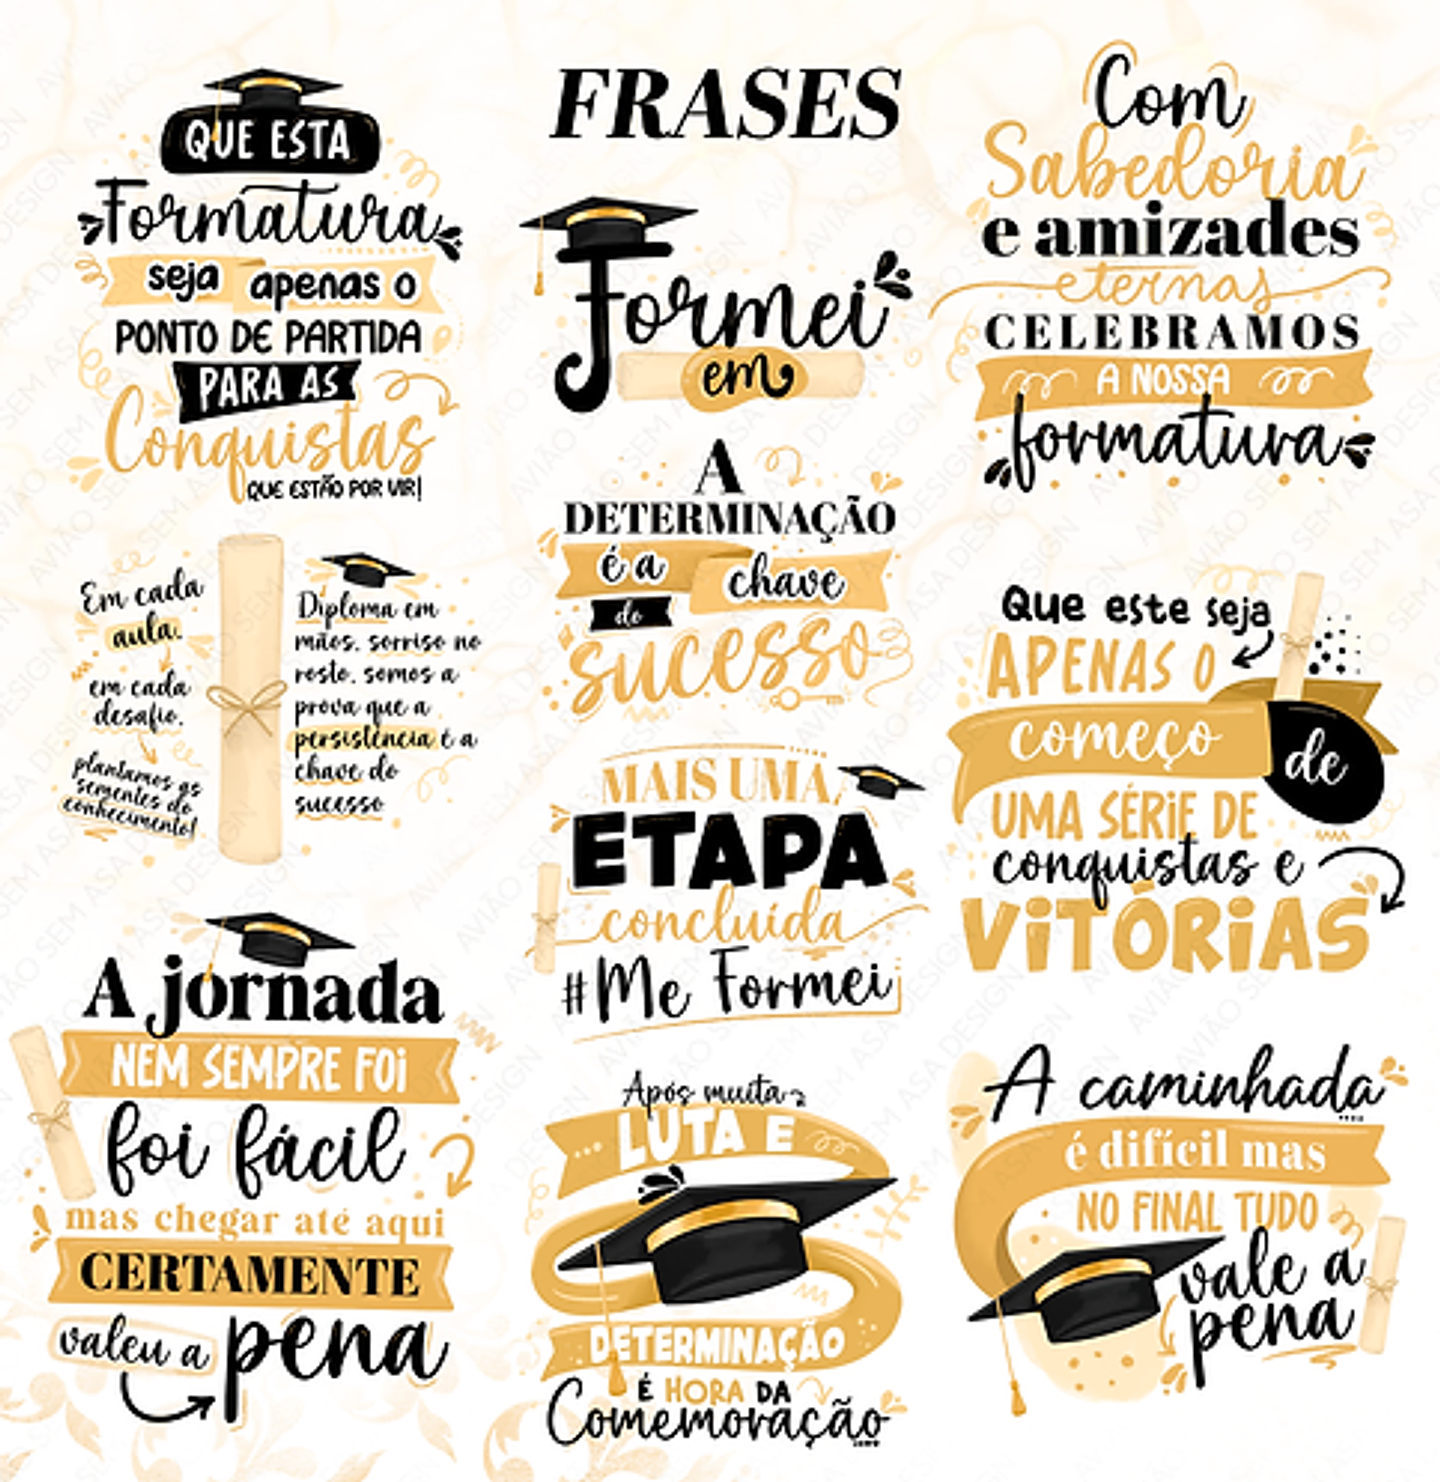 FRASES
QUE ESTA
Formatura
seja apenas o
PONTO DE PARTIDA
PARA AS
Conquistas
QUE ESTÃO POR VIR!
Formei
em
Com
Sabedoria
e amizades
eternas
CELEBRAMOS
A NOSSA
formatura
Em cada
aula,
em cada
desafio,
plantamos as
sementes do
conhecimento!
Diploma em
mãos, sorriso no
rosto, somos a
prova que a
persistência é a
chave do
sucesso
A
DETERMINAÇÃO
é a chave
do
sucesso
MAIS UMA
ETAPA
concluída
#Me Formei
Que este seja
APENAS O
começo
de
UMA SÉRIE DE
conquistas e
VITÓRIAS
A jornada
NEM SEMPRE FOI
foi fácil
mas chegar até aqui
CERTAMENTE
valeu a pena
Após muita
... LUTA E
DETERMINAÇÃO
É HORA DA
Comemoração
A caminhada
é difícil mas
NO FINAL TUDO
vale a
pena
AVIÃO SEM ASA DESIGN